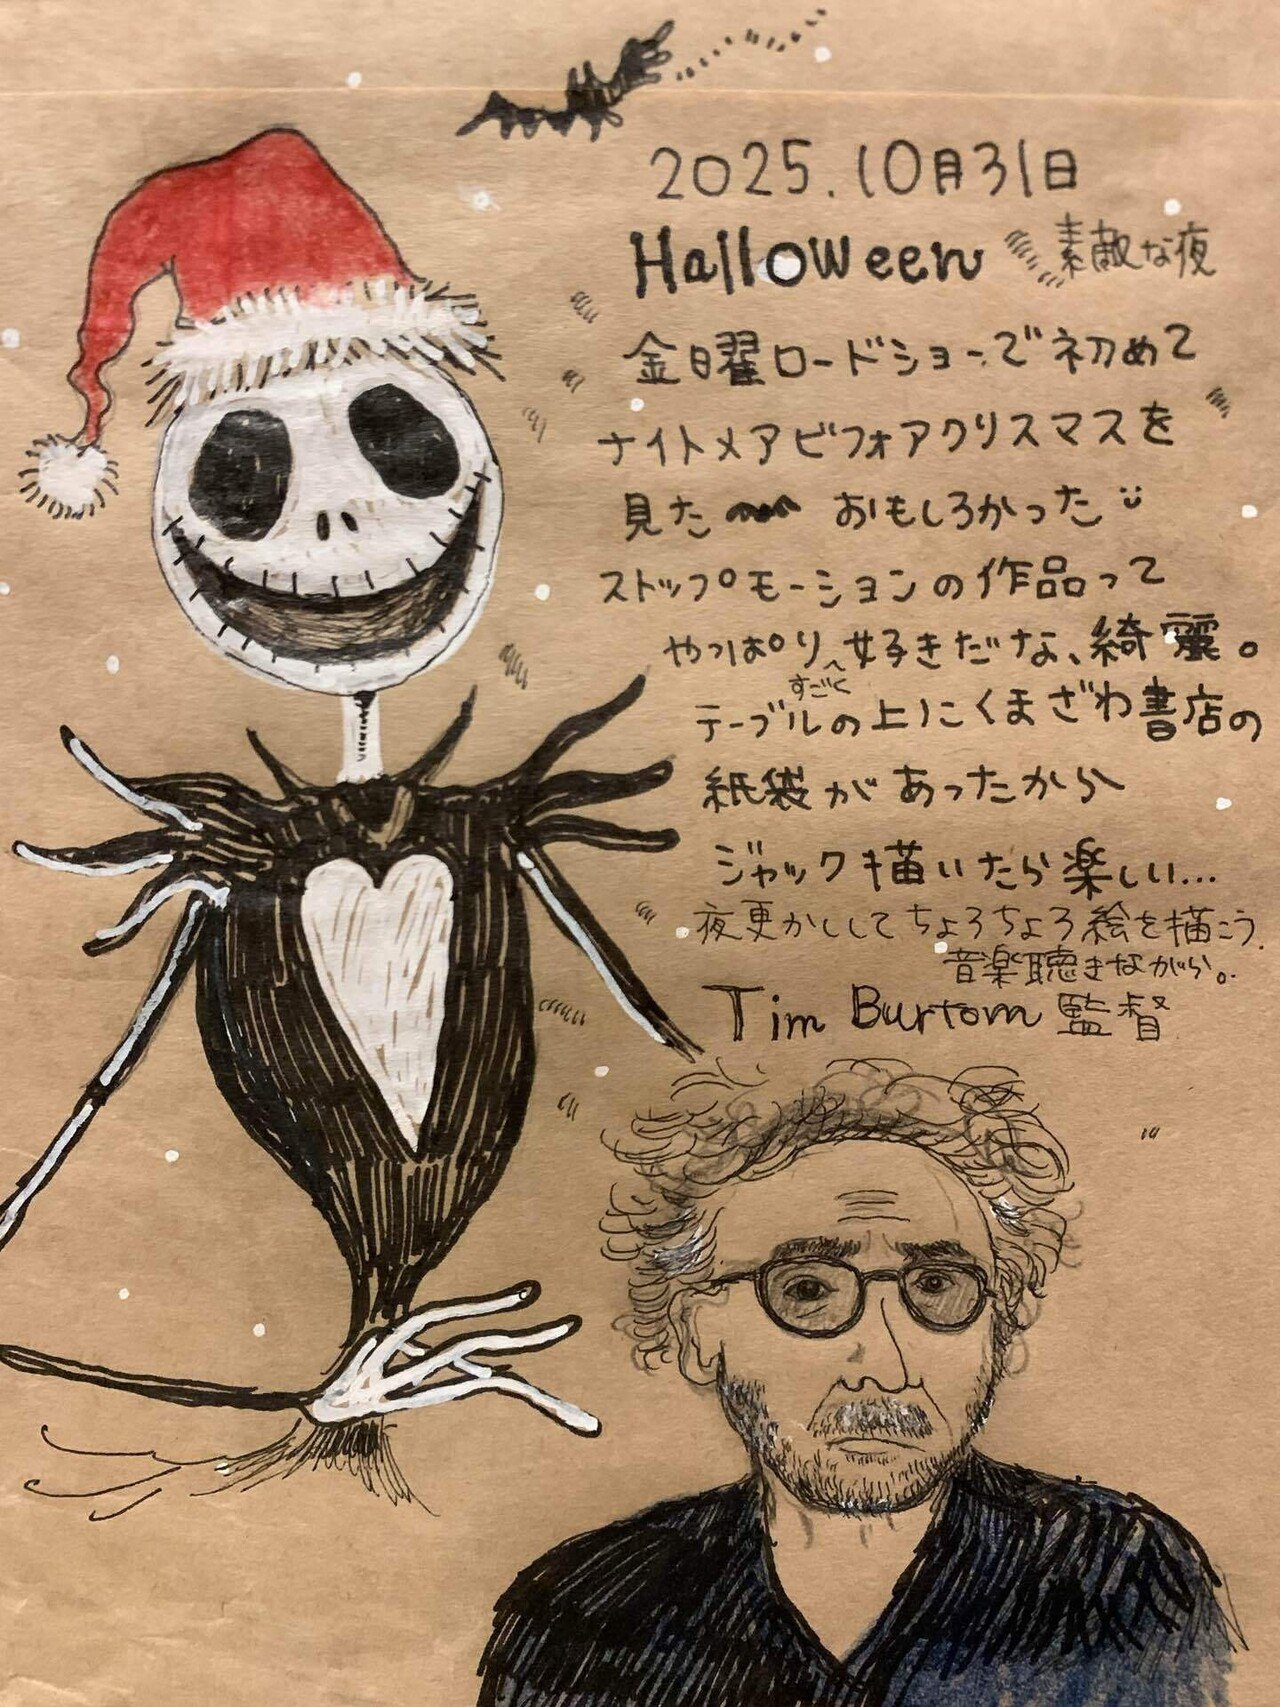 2025.10月31日
Halloween 素敵な夜
金曜ロードショーで初めて
ナイトメアビフォアクリスマスを
見た おもしろかった
ストップモーションの作品って
やっぱり すごく 好きだな、綺麗。
テーブルの上にくまざわ書店の
紙袋があったから
ジャック描いたら楽しい...
夜更かししてちょろちょろ絵を描こう.
音楽聴きながら。
Tim Burtom 監督